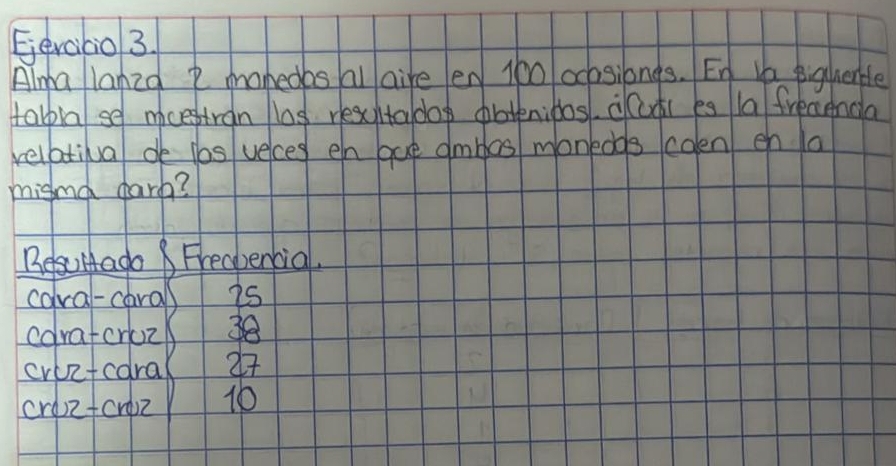 Ejercicio 3.
Alma lanza 2 monedas al aire en 100 ocasiones. En la siguiente
tabla se muestran los resultados obtenidos. ¿Cuál es la frecuencia
relativa de las veces en que ambas monedas caen en la
misma cara?
Resultado Frecuencia.
cara-cara 25
cara-cruz 38
cruz-cara 27
cruz-cruz 10